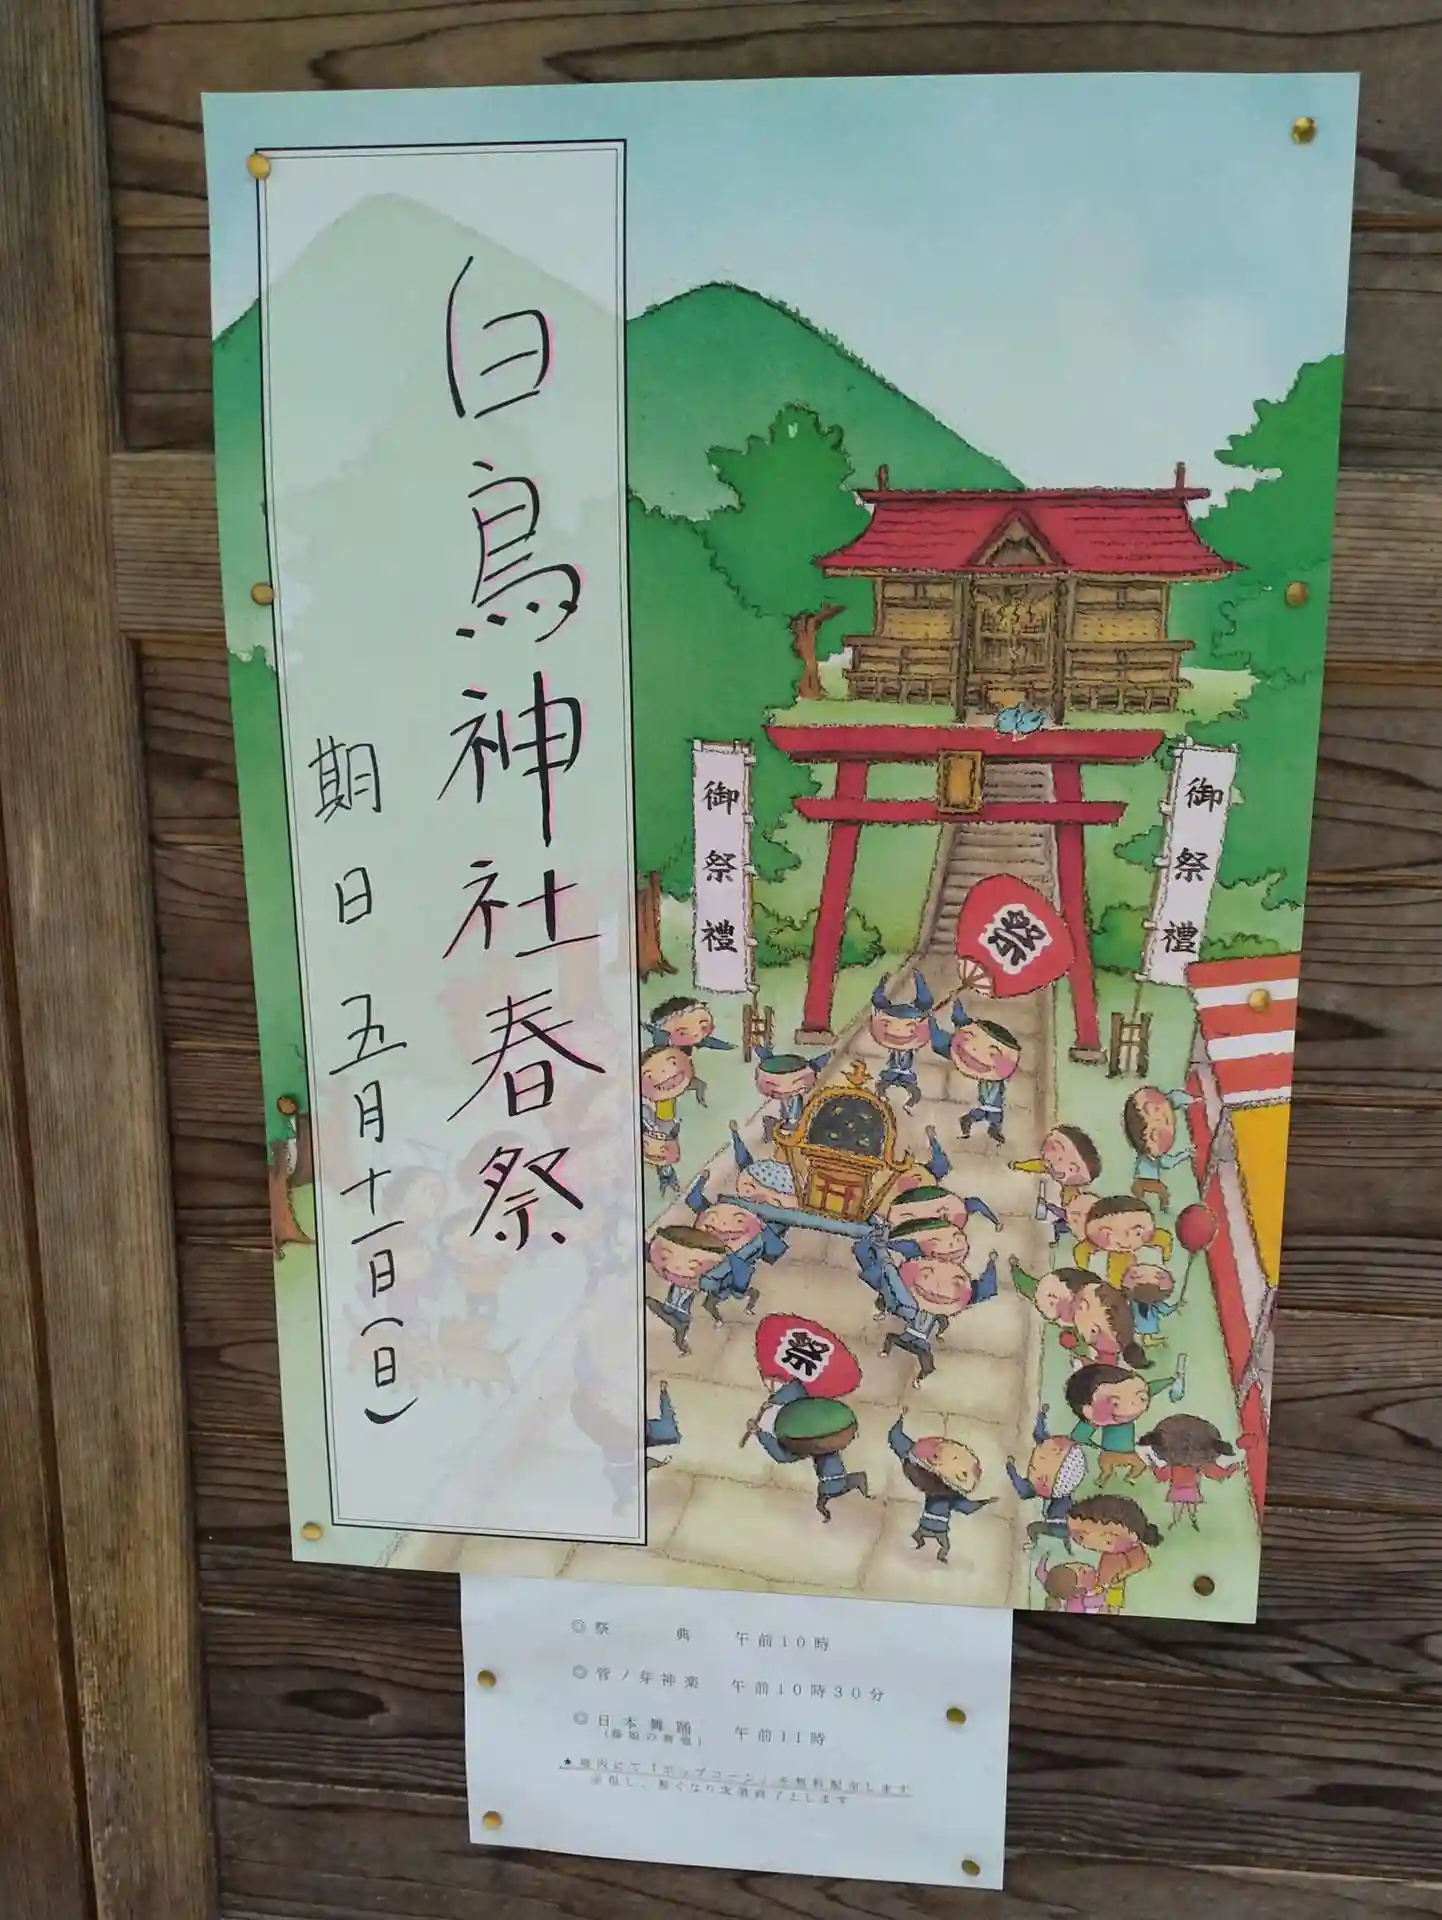 白鳥神社春祭
期日 五月十一日(日)
御祭禮
御祭禮
祭
祭
◎祭典 午前10時
◎管ノ芽神楽 午前10時30分
◎日本舞踊 午前11時
★境内にて「ポップコーン」を無料配布します
但し、無くなり次第終了とします